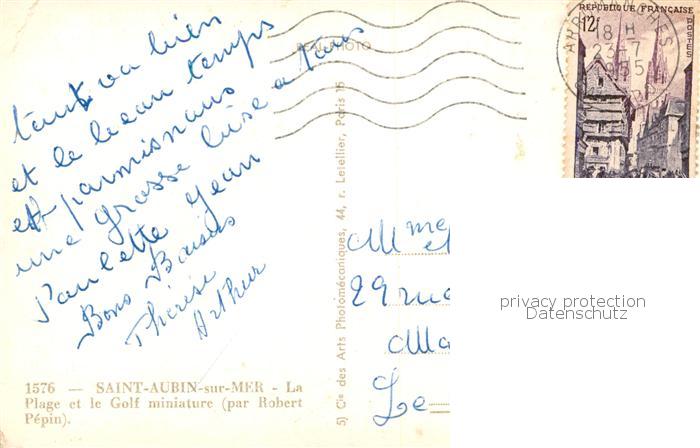 tout va bien
et le beau temps
est parmis nous
une grosse bise a tous
Paulette Jean
Bons Baisers
Thérèse
Arthur
1576 — SAINT-AUBIN-sur-MER - La
Plage et le Golf miniature (par Robert
Pépin).
REAL PHOTO
5) Cie des Arts Photomécaniques, 44, r. Letellier, Paris 15
REPUBLIQUE FRANÇAISE
12f
POSTES
18 H
23-7
1955
Mme et
29 rue
Ma
Le
privacy protection
Datenschutz